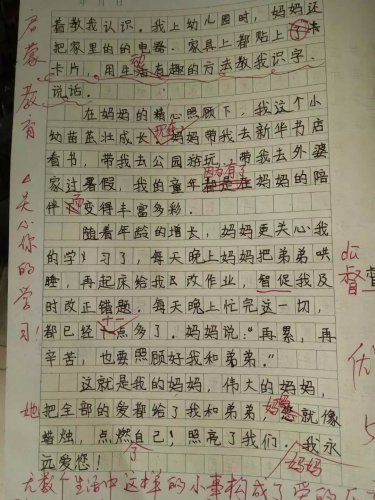 着教我认识。我上幼儿园时，妈妈还
把家里的的电器、家具上都贴上了卡
卡片，用生活有趣的方法教我识字、
说话。
在妈妈的精心照顾下，我这个小
幼苗茁壮成长。妈妈带我去新华书店
看书，带我去公园游玩，带我去外婆
因为有了
家过暑假，我的童年都是在妈妈的陪
伴变得丰富多彩。
随着年龄的增长，妈妈更关心我
的学习了，每天晚上妈妈把弟弟哄
睡，再起床给我改作业，智促我及
时改正错题。每天晚上忙完这一切，
十一
都已经点多了。妈妈说："再累，再
辛苦，也要照顾好我和弟弟。"
这就是我的妈妈，伟大的妈妈，
她把全部的爱都给了我和弟弟
妈妈
您就像
蜡烛，点燃自己！照亮了我们。我永
了
妈妈
远爱您！
无数个生活中这样的小事构成了
启蒙教育
关心你的学习！
du
督
优